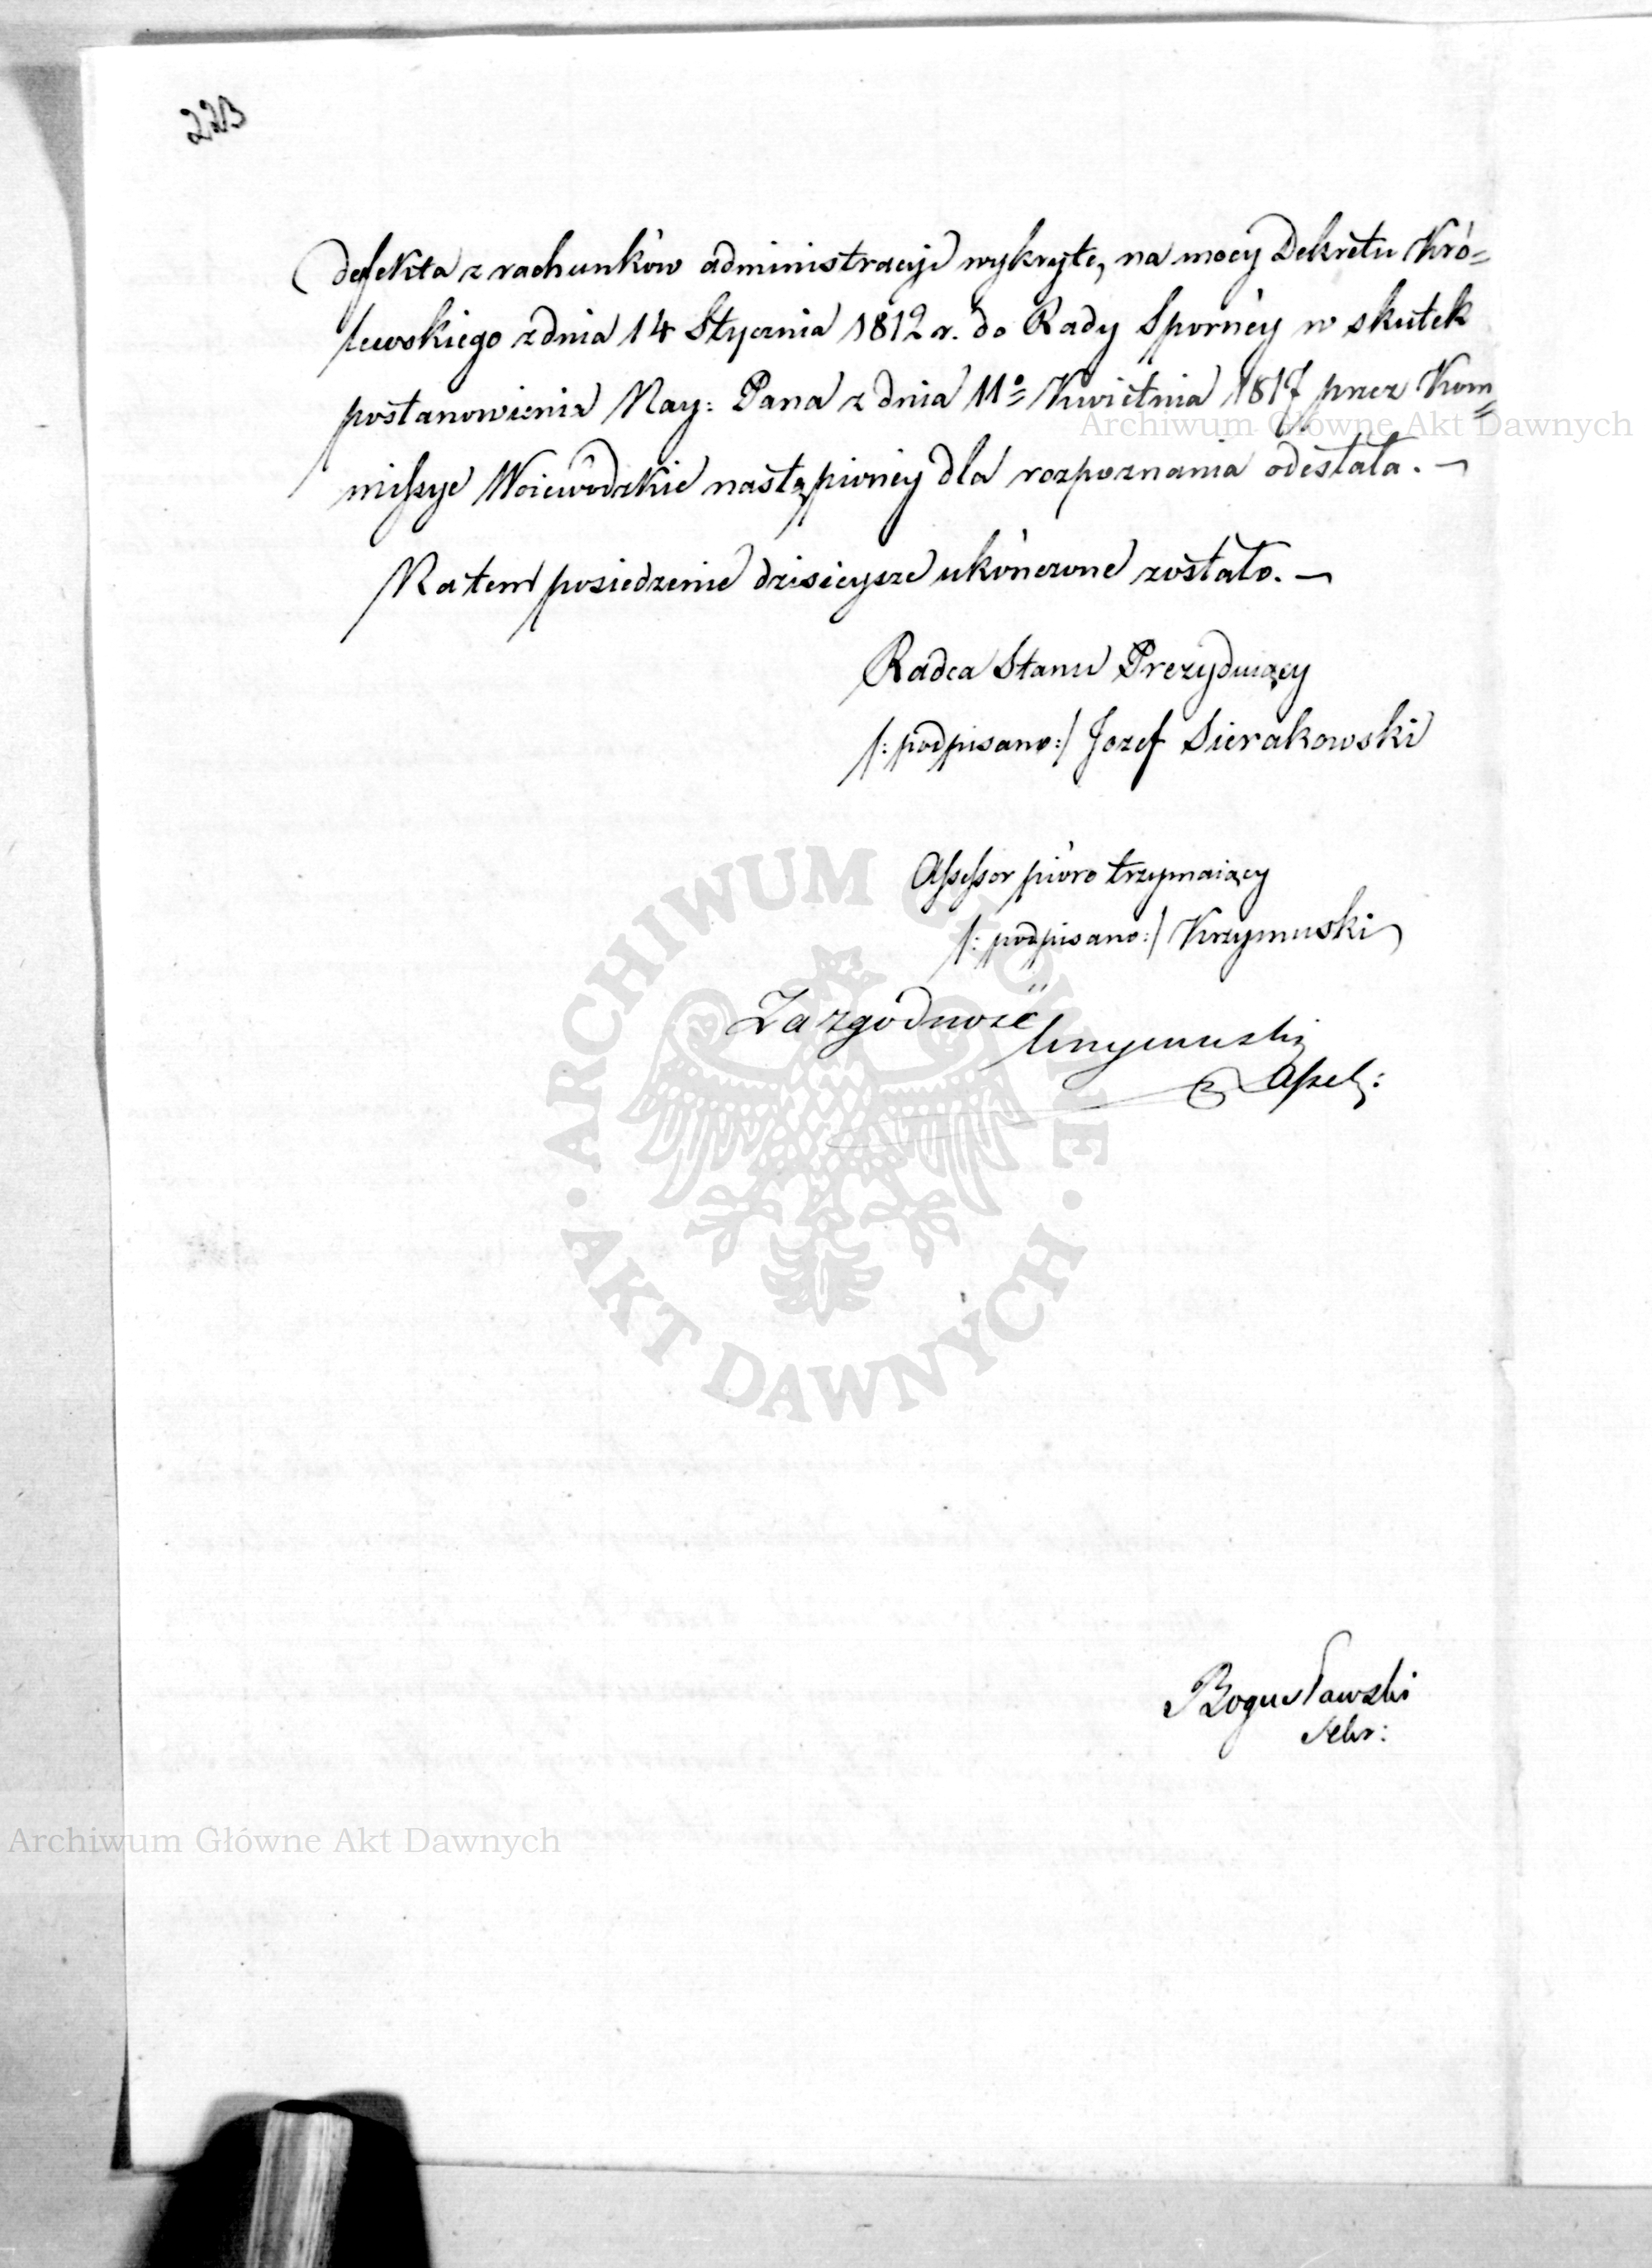 223
defekta z rachunków administracyi wykryte, na mocy Dekretu Kró=
lewskiego z dnia 14 Stycznia 1812 r. do Rady Sporney w skutek
postanowienia Nay: Pana z dnia 11º Kwietnia 1817 przez Kom=
missye Woiewódzkie nastąpioney dla rozpoznania odesłała. —
Na tem posiedzenie dzisieysze ukończone zostało. —
Radca Stanu Prezyduiący
/: podpisano :/ Jozef Sierakowski
Assessor pióro trzymaiący
/: podpisano :/ Krzymuski
Za zgodność
Krzymuski
Asses:
Bogusławski
Sekr:
Archiwum Główne Akt Dawnych
ARCHIWUM GŁÓWNE
· AKT DAWNYCH ·
Archiwum Główne Akt Dawnych